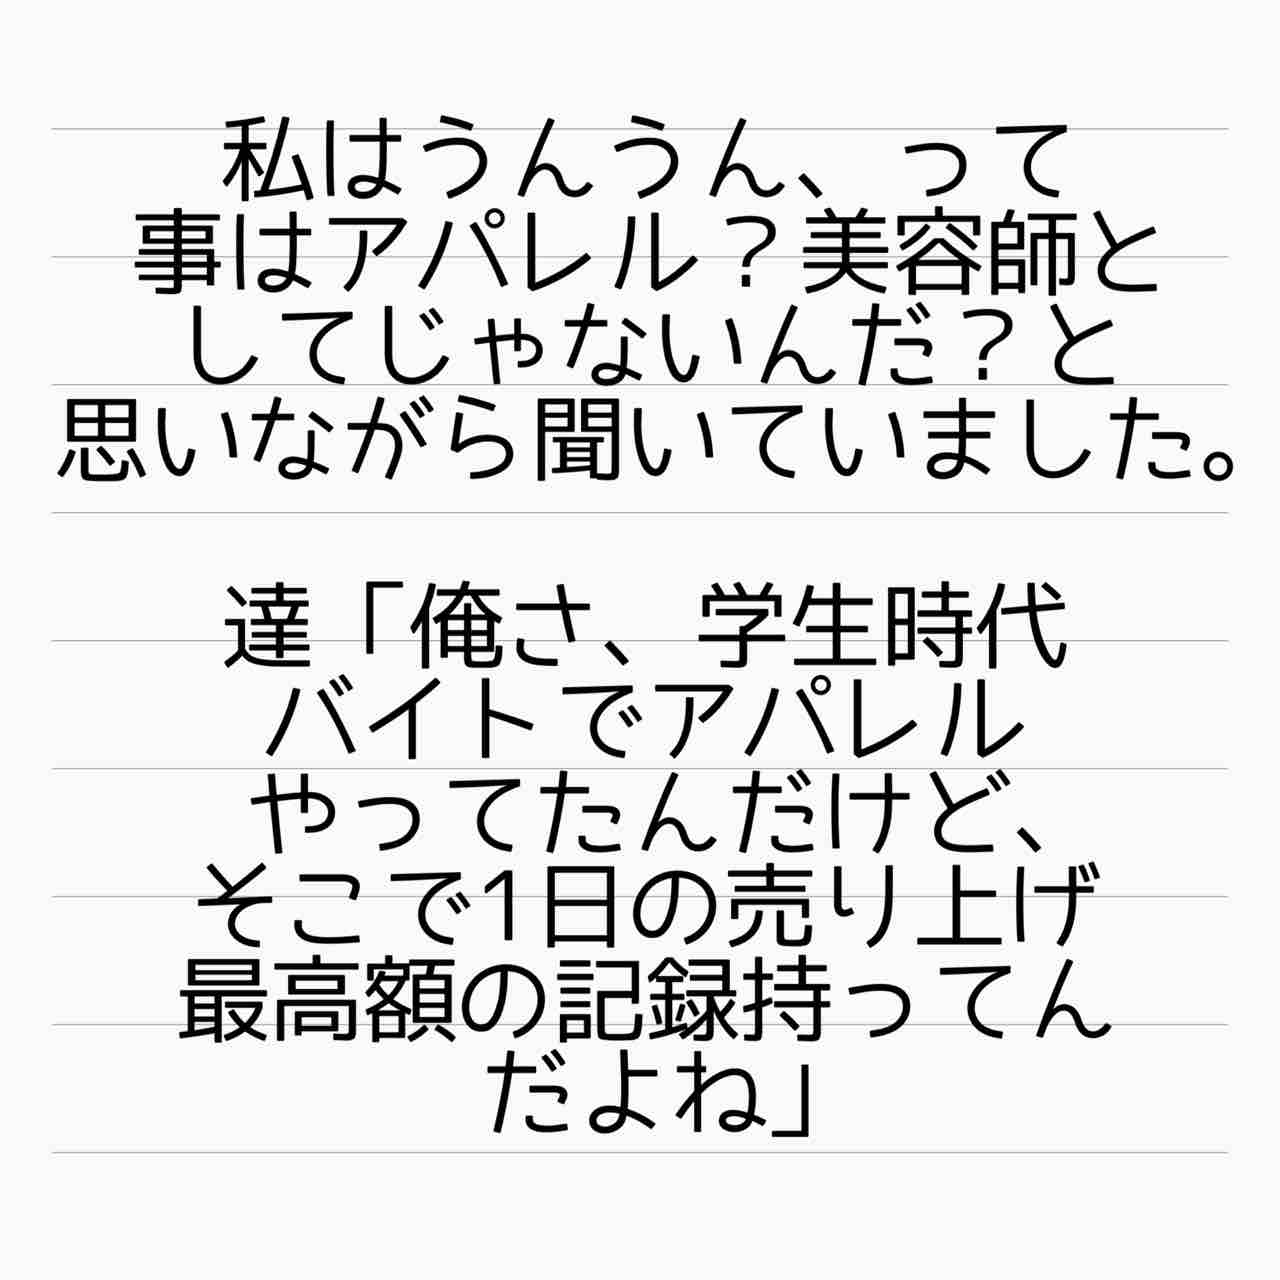 私はうんうん、って
事はアパレル？美容師と
してじゃないんだ？と
思いながら聞いていました。
達「俺さ、学生時代
バイトでアパレル
やってたんだけど、
そこで1日の売り上げ
最高額の記録持ってん
だよね」